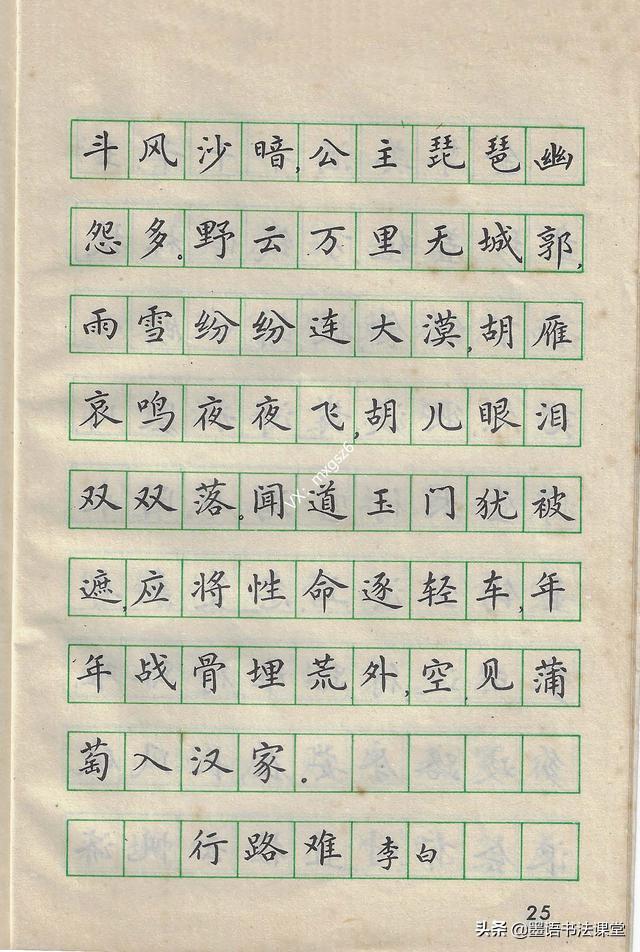 斗风沙暗,公主琵琶幽
怨多。野云万里无城郭,
雨雪纷纷连大漠,胡雁
哀鸣夜夜飞,胡儿眼泪
双双落。闻道玉门犹被
遮,应将性命逐轻车,年
年战骨埋荒外,空见蒲
萄入汉家。
行路难 李白
25
VX: mxgsz6
头条 @墨语书法课堂